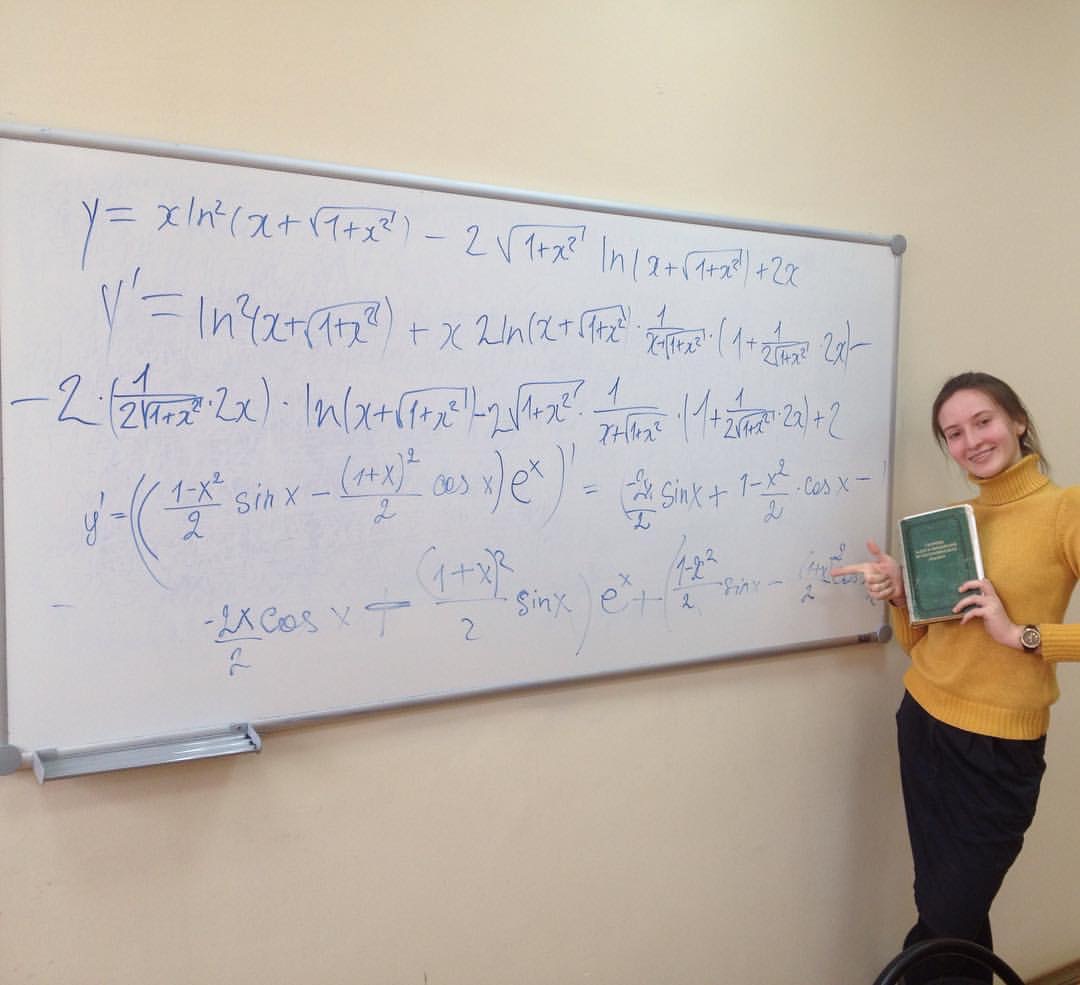 y = x ln²(x + √(1+x²)) − 2√(1+x²) ln(x+√(1+x²)) + 2x
y' = ln²(x+√(1+x²)) + x 2ln(x+√(1+x²)) · 1/(x+√(1+x²)) · (1 + 1/(2√(1+x²)) · 2x) −
− 2 · (1/(2√(1+x²)) · 2x) · ln(x+√(1+x²)) − 2√(1+x²) · 1/(x+√(1+x²)) · (1 + 1/(2√(1+x²)) · 2x) + 2
y' = (((1−x²)/2 sin x − (1+x)²/2 cos x) eˣ)' = (−2x/2 sin x + (1−x²)/2 · cos x −
− −2x/2 cos x + (1+x)²/2 sin x) eˣ + ((1−x²)/2 sin x − (1+x)²/2 cos x